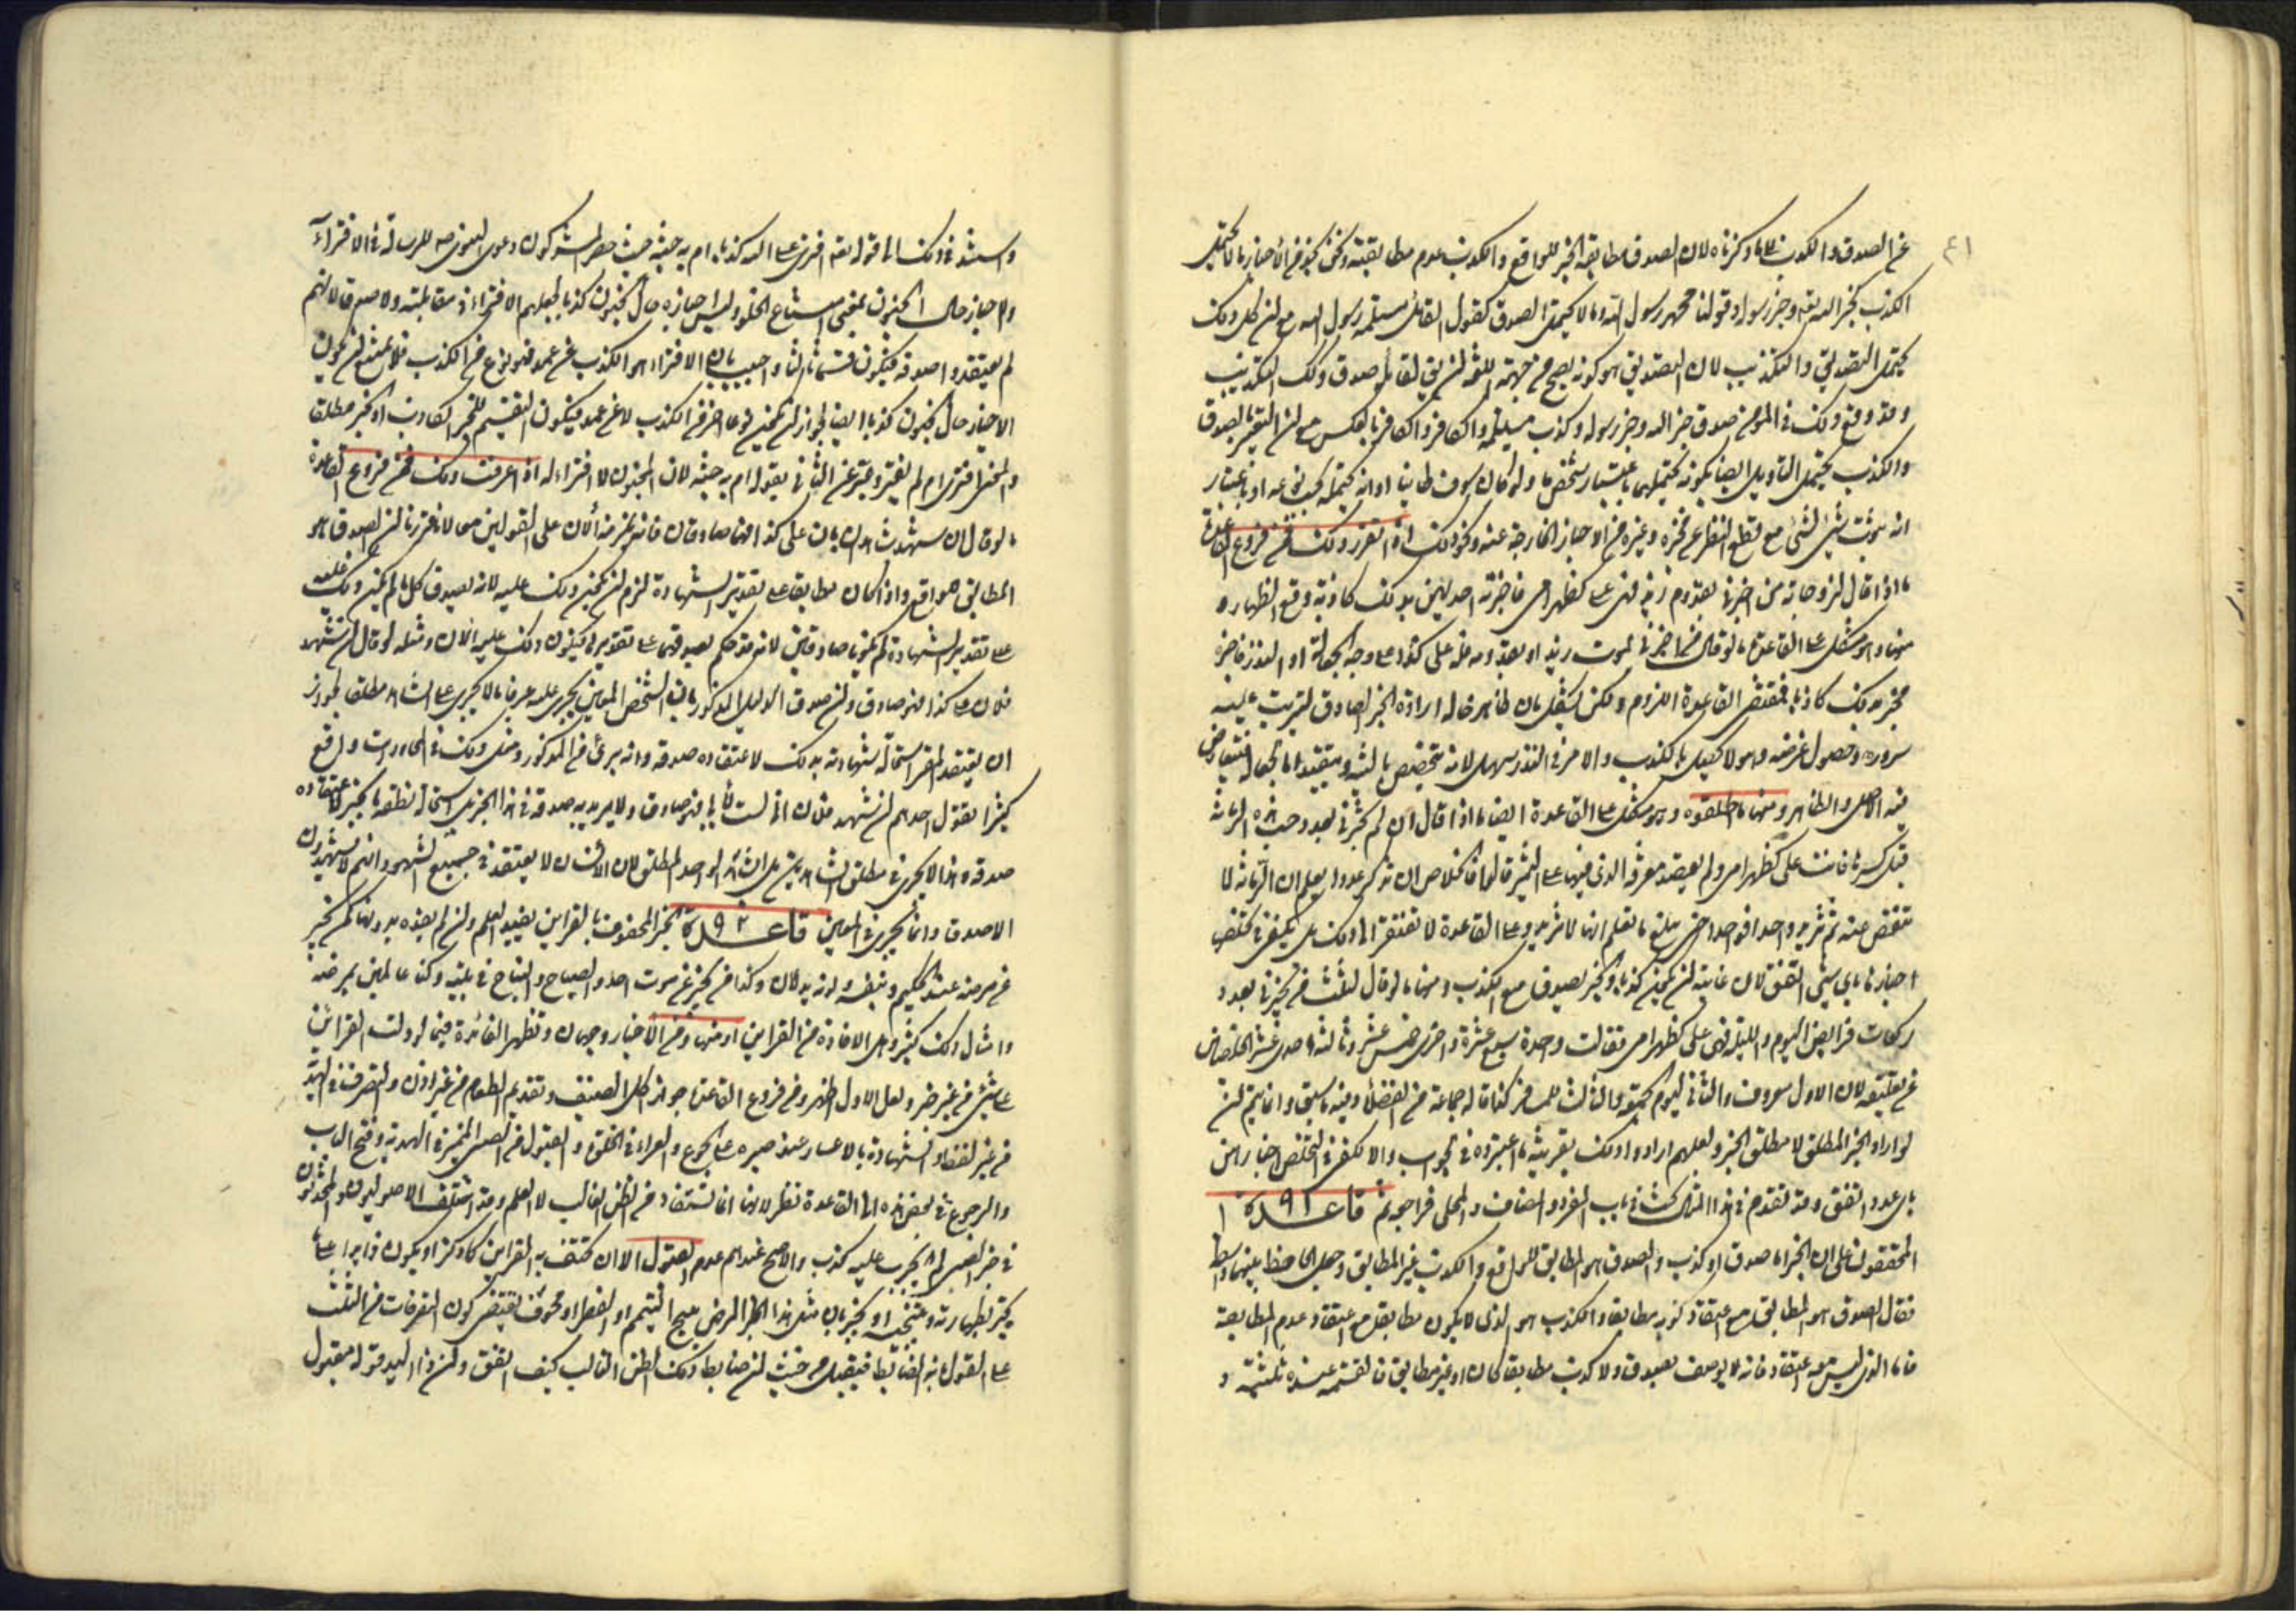 ٤١
عن الصدق والكذب لا ما ذكرناه لان الصدق مطابقة الخبر للواقع والكذب عدم مطابقته ونحن نجد في الأخبار ما لا يحتمل
الكذب كخبر الله تعالى وخبر رسوله وقولنا محمد رسول الله وما لا يحتمل الصدق كقول القائل مسيلمة رسول الله مع ان كل ذلك
يحتمل التصديق والتكذيب لان التصديق هو كونه يصح من جهة اللغة ان يقال لقائله صدق وكذلك التكذيب
وقد وقع ذلك في المؤمن صدق خبر الله وخبر رسوله وكذب مسيلمة والكافر بالعكس مع ان التعبير بالصدق
والكذب يحتمل التأويل ايضا بكونه يحتملهما باعتبار شخص ما ولو كان سوفسطائيا او انه يحتمله بحسب نوعه او باعتبار
انه ثبوت شيء لشيء مع قطع النظر عن مخبره وغيره من الاخبار الخارجة عنه ونحو ذلك اذا تقرر ذلك فمن فروع القاعدة
ما اذا قال لزوجاته من اخبرني بقدوم زيد فهي علي كظهر امي فاخبرته احديهن بذلك كاذبة وقع الظهار و
منها وهو مشكل على القاعدة ما لو قال من اخبرني بموت زيد او بقدومه فله علي كذا على وجه الجعالة او النذر فاخبره
مخبر بذلك كاذبا فمقتضى القاعدة اللزوم ولكن يشكل بان ظاهر حاله ارادة الخبر الصادق لترتب عليه
سروره وحصول غرضه وهو لا يحصل بالكذب والامر في النذر سهل لانه يتخصص بالنية ويتقيد اما الجعالة فيتعارض
فيه الاصل والظاهر ومنها ما اطلقوه وهو مشكل على القاعدة ايضا ما اذا قال ان لم تخبريني بعدد حب هذه الرمانة
قبل كسرها فانت علي كظهر امي ولم يقصد معرفة الذي فيها على التمييز قالوا فالخلاص ان تذكر عددا يعلم ان الرمانة لا
تنقص عنه ثم تزيد واحدا فواحدا حتى يبلغ ما تعلم انها لا تزيد وعلى القاعدة لا تفتقر الى ذلك بل يكفي في تخلصه
اخبارها باي شيء اتفق لان غايته ان يكون كذبا والخبر يصدق مع الكذب ومنها ما لو قال لثلث من لم تخبرني بعدد
ركعات فرايض اليوم والليلة فهي علي كظهر امي فقالت واحدة سبع عشرة واخرى خمس عشرة وثالثة احدى عشر الخلاص
عن تعليقه لان الاول معروف والثاني ليوم الجمعة والثالث للمسافر كذا قاله جماعة من الفضلاء وفيه ما سبق وانما يتم لن
لو اراد الخبر المطلق لا مطلق الخبر ولعلهم ارادوا ذلك بقرينة ما اعتبروه في الجواب والا لكفى في التخلص اخبارهن
باي عدد اتفق وقد تقدم في هذا المثال بحث في باب المفرد والمضاف والمحلى فراجعه ثم قاعدة ٩٢
المحققون على ان الخبر اما صدق او كذب والصدق هو المطابق للواقع والكذب غير المطابق وجعل الجاحظ بينهما واسطة
فقال الصدق هو المطابق مع اعتقاد كونه مطابقا والكذب هو الذي لا يكون مطابقا مع اعتقاد عدم المطابقة
فاما الذي ليس معه اعتقاد فانه لا يوصف بصدق ولا كذب مطابقا كان او غير مطابق فالقسمة عنده ثلثية و
واستند في ذلك الى قوله تعالى افترى على الله كذبا ام به جنة حيث حصر المشركون دعوى النبي ص الرسالة في الافتراء
والاخبار حال الجنون بمعنى امتناع الخلو وليس اخباره حال الجنون كذبا لجعلهم الافتراء في مقابلته ولا صدق لانهم
لم يعتقدوا صدقه فيكون قسما ثالثا واجيب بان الافتراء هو الكذب عن عمد فهو نوع من الكذب فلا يمتنع ان يكون
الاخبار حال الجنون كذبا ايضا لجواز ان يكون نوعا اخر من الكذب لا عن عمد فيكون التقسيم للخبر الكاذب او الخبر مطلقا
والمعنى افترى ام لم يفتر وعبر عن الثاني بقوله ام به جنة لان المجنون لا افتراء له اذا عرفت ذلك فمن فروع القاعدة
ما لو قال ان شهد شاهدان بان علي كذا فهما صادقان فانه يلزمه الان على القولين معا لانا قررنا ان الصدق هو
المطابق للواقع واذا كان مطابقا على تقدير الشهادة لزم ان يكون ذلك عليه لانه يصدق كلما لم يكن ذلك عليه
على تقدير الشهادة لم يكونا صادقين لانه قد حكم بصدقهما على تقديرها فيكون ذلك عليه الان ومثله لو قال ان شهد
فلان على كذا فهو صادق وان صدق الدليل المذكور بان الشخص المعين يجري عليه عرفا ما لا يجري على الشاهد مطلقا لجواز
ان يعتقد المقر استحالة شهادته بذلك لاعتقاده صدقه وانه بريء من المذكور ومثل ذلك في المحاورات واقع
كثيرا يقول احدهم ان شهد فلان اني لست لأبي فهو صادق ولا يريد به صدقه في هذا الخبر بل استحالة نطقه بالخبر لاعتقاده
صدقه وهذا لا يجري في مطلق الشاهدين بل الشاهد الواحد المطلق لان الانسان لا يعتقد في جميع الشهود انهم لا يشهدون
الا صدقا وانما يجري في المعين قاعدة ٩٣ الخبر المحفوف بالقرائن يفيد العلم وان لم يفده بدونها كمن يخبر
عن مرضه عند الحكيم ونبضه ولونه يدلان وكذا من يخبر عن موت احد والصياح والنياح في بيته وكنا عالمين بمرضه
وامثال ذلك كثيرة وهل الافادة من القرائن او منها ومن الاخبار وجهان وتظهر الفائدة فيما لو دلت القرائن
على شيء من غير خبر ولعل الاول اظهر ومن فروع القاعدة جواز اكل الضيف بتقديم الطعام من غير اذن والتصرف في الهدية
من غير لفظ والشهادة بالاعسار عند صبره على الجوع والعراء في الخلوة والقبول من الصبي المميز في الهدية وفتح الباب
والرجوع في بعض هذه الى القاعدة نظر لانها انما تستفاد من الظن الغالب لا العلم وقد اختلف الاصوليون والمحدثون
في خبر الصبي الذي لم يجرب عليه كذب والاصح عندهم عدم القبول الا ان تحتف به القرائن كما ذكر او يكون
يخبر بطهارته وتنجسه او يخبر بان مثل هذا المرض مبيح للتيمم او الفطر او مخوف يقتضي كون التصرفات من الثلث
على القول به الضابط فيقبل من حيث ان ضابط ذلك الظن الغالب كيف اتفق وان ذا اليد قوله مقبول